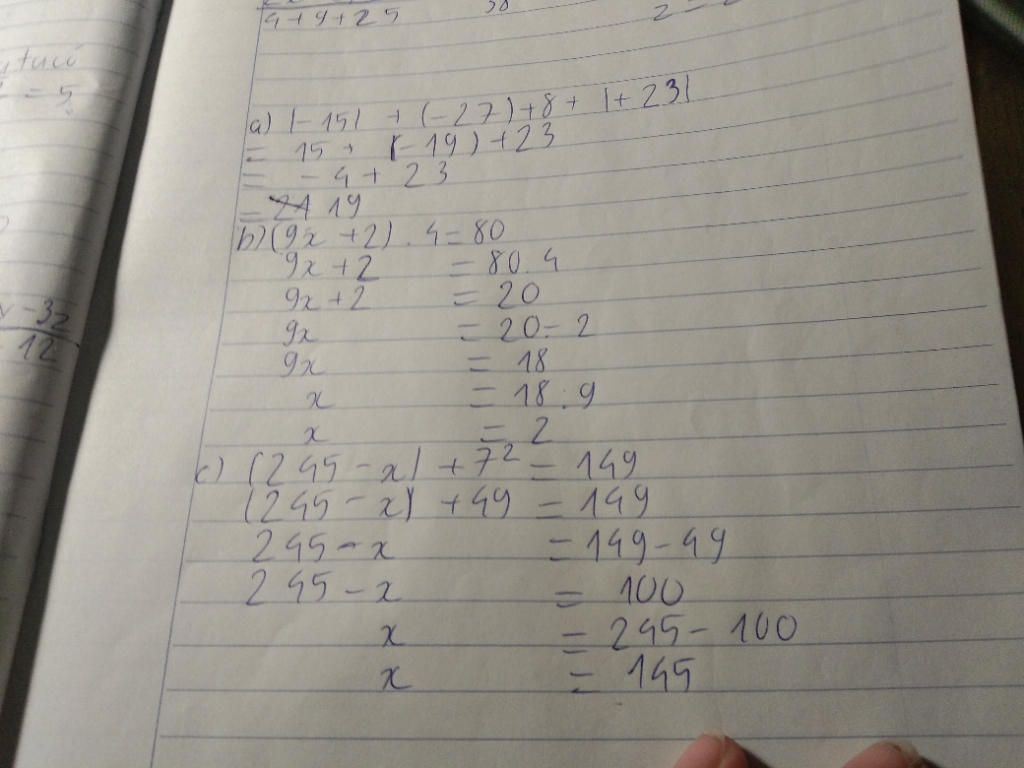 4+9+25
38
= 5
-32
12
a) |-15| + (-27)+8+ |+23|
= 15+ (-19)+23
= -4+ 23
= 19
b) (9x +2) . 4=80
9x+2 = 80.4
9x+2 = 20
9x = 20-2
9x = 18
x = 18:9
x = 2
c) (245-x) +7² = 149
(245-x) +49 = 149
245-x = 149-49
245-x = 100
x = 245-100
x = 145